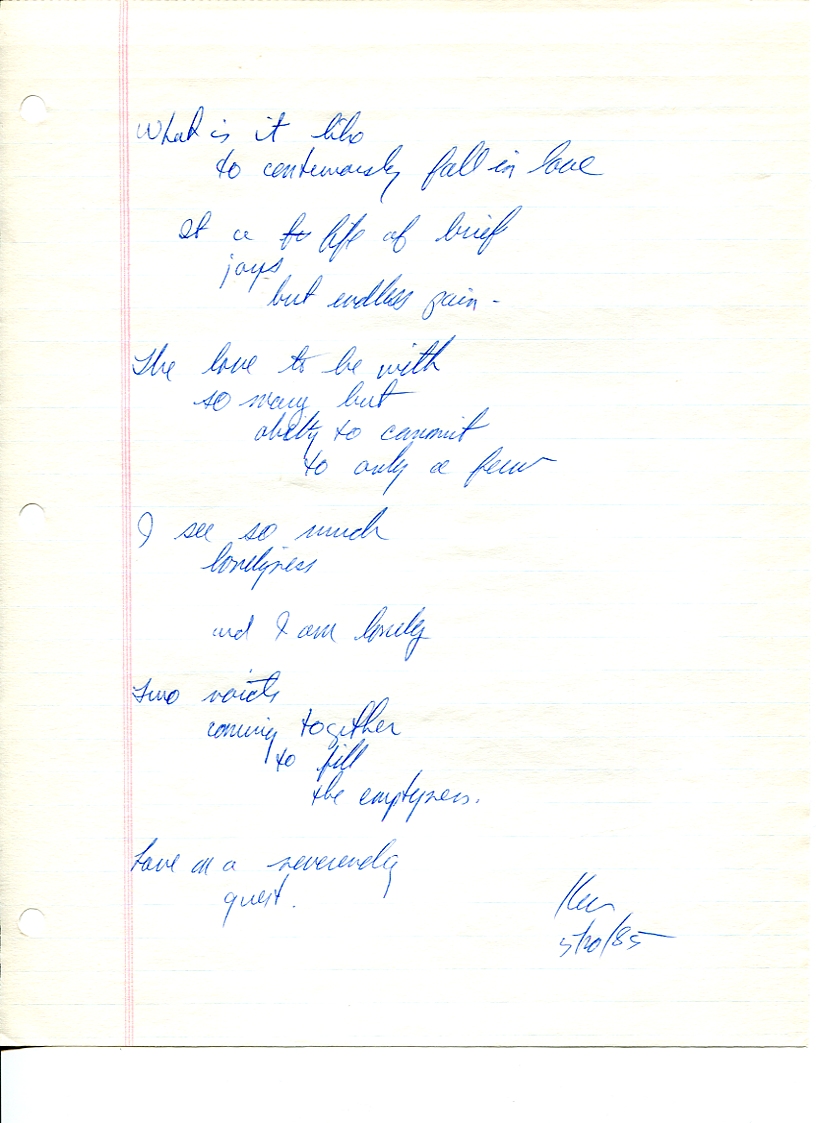 What is it like
to contenuously fall in love
It is a life of brief
joys
but endless pain -
The love to be with
so many but
ability to commit
to only a few
I see so much
lonelyness
and I am lonely
Two voids
coming together
to fill
the emptyness.
Love is a
quest.
Ken
5/20/85